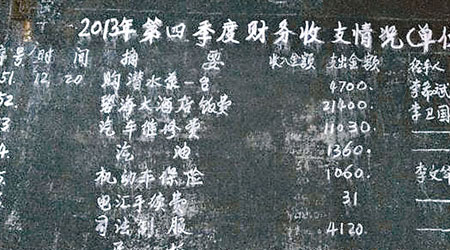 2013年第四季度财务收支情况(单位
序号 时间 摘要 收入金额 支出金额 经手人
51 12 20 购潜水泵一台 4700. 李希斌
52. 碧海大酒店餐费 21400. 李卫国
3 汽车维修费 11030.
4. 汽油 1360.
5. 机动车保险 1060. 李文军
电汇手续费 31
司法制服 4120.